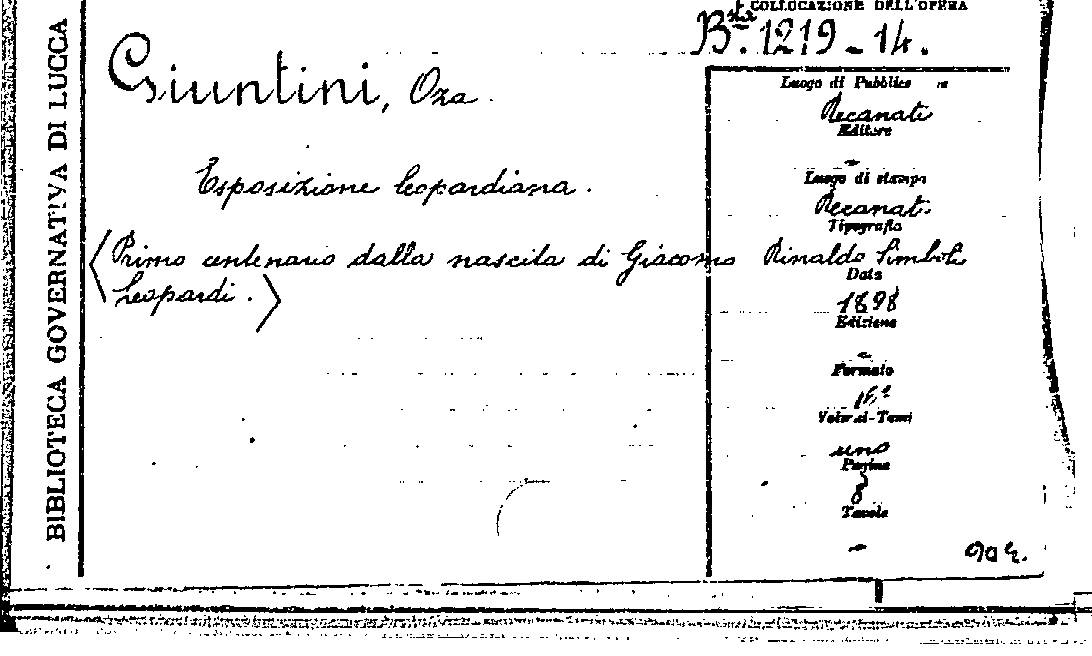 BIBLIOTECA GOVERNATIVA DI LUCCA
COLLOCAZIONE DELL'OPERA
Bsta. 1219 - 14.
Giuntini, Oza.
Esposizione leopardiana.
〈Primo centenario dalla nascita di Giacomo
Leopardi.〉
Luogo di Pubblic
Recanati
Editore
-
Luogo di stampa
Recanati
Tipografia
Rinaldo Simboli
Data
1898
Edizione
-
Formato
16°
Volumi-Tomi
uno
Pagine
8
Tavole
-